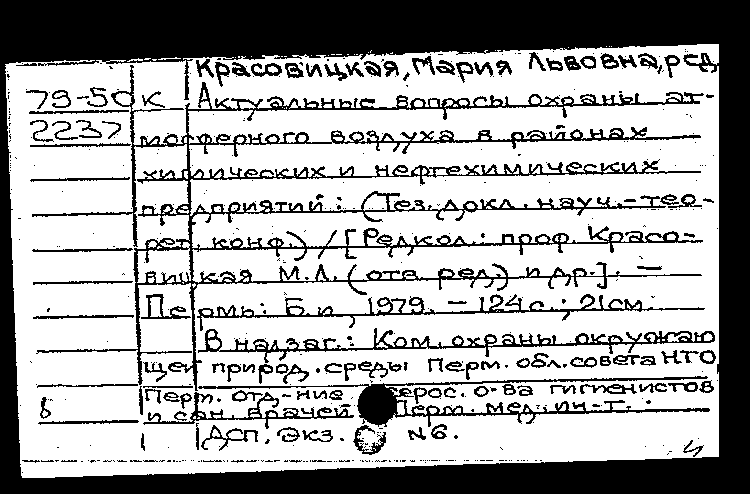 Красовицкая, Мария Львовна, ред.
79-50 К Актуальные вопросы охраны ат-
2237 мосферного воздуха в районах
химических и нефтехимических
предприятий: (Тез. докл. науч.-тео-
рет. конф.) / [Редкол.: проф. Красо-
вицкая М.Л. (отв. ред) и др.]. —
Пермь: Б.и, 1979. - 124 с.; 21см.
В надзаг.: Ком. охраны окружаю
щей природ. среды Перм. обл. совета НТО
Перм. отд-ние Всерос. о-ва гигиенистов
и сан. врачей Перм. мед. ин-т.
ДСП. Экз. N6.